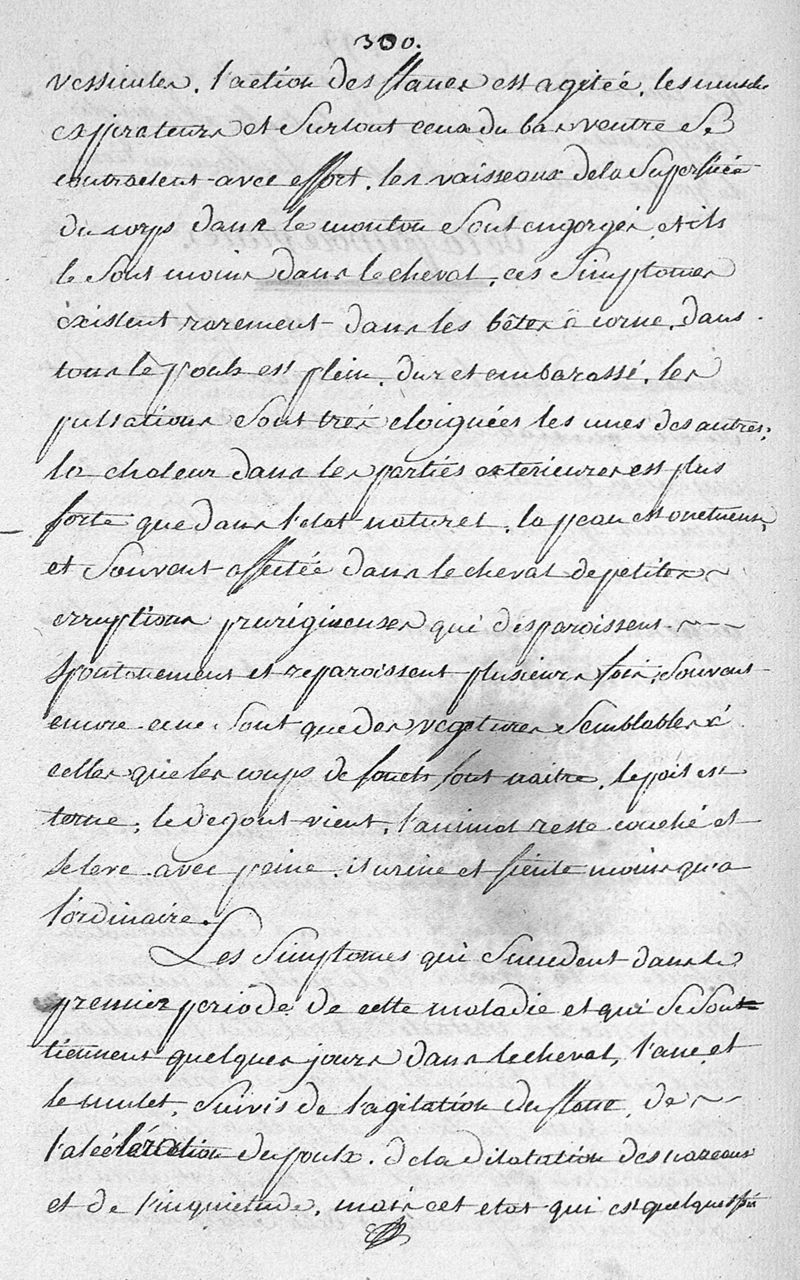 300.
vessicules. l'action des flancs est agitée, les muscles
expirateurs et surtout ceux du bas ventre se
contractent avec effort. les vaisseaux de la superficie
du corps dans le mouton sont engorgés, et ils
le sont moins dans le cheval, ces simptomes
existent rarement dans les bêtes à corne, dans
tous le poulx est plein, dur et embarassé, les
pulsations sont trés eloignées les unes des autres,
la chaleur dans les parties exterieures est plus
forte que dans l'etat naturel, la peau est onctueuse,
et souvent affectée dans le cheval de petites
erruptions prurégineuses qui disparoissent
spontanement et reparoissent plusieurs fois, souvent
encore ce ne sont que des vergetures semblables à
celles que les coups de fouets font naitre, le poil est
terne, le degout vient, l'animal reste couché et
se leve avec peine, il urine et fiente moins qu'a
l'ordinaire.
Les simptomes qui succedent dans la
premier periode de cette maladie et qui se sout
tiennent quelques jours dans le cheval, l'ane, et
le mulet, suivis de l'agitation du flanc, de
l'alcélération du poulx. de la dilatation des nazeaux
et de l'inquietude, mais cet etat qui est quelque fois